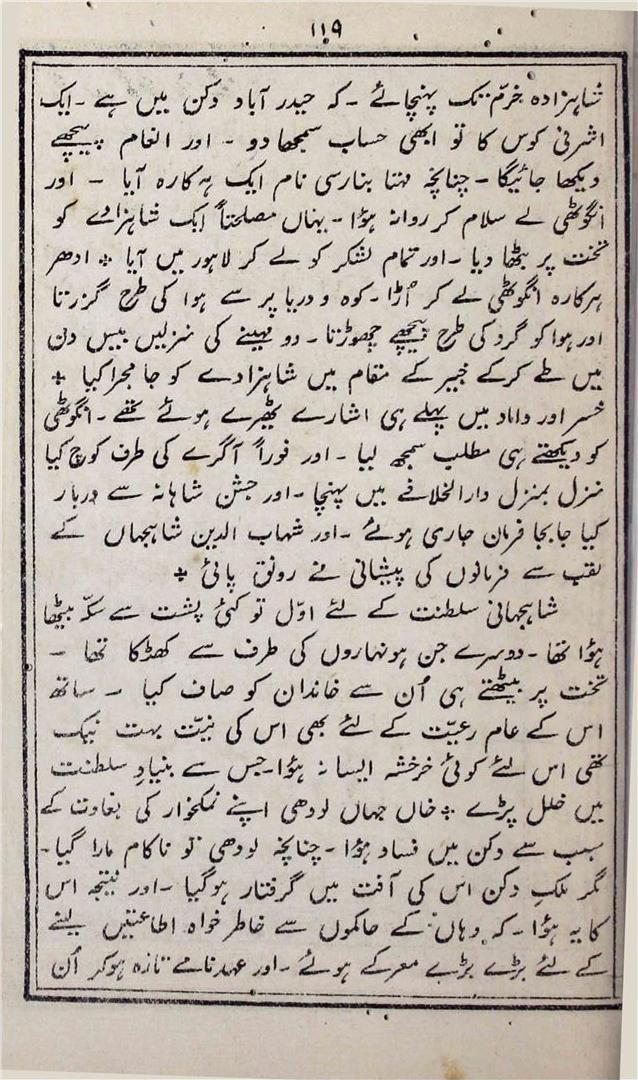 ۱۱۹
شاہزادہ خرّم تک پہنچائے ۔ کہ حیدر آباد دکن میں ہے ۔ ایک
اشرفی کوس کا تو ابھی حساب سمجھا دو ۔ اور انعام پیچھے
دیکھا جائیگا ۔ چنانچہ مہتا بنارسی نام ایک ہرکارہ آیا ۔ اور
انگوٹھی لے سلام کر روانہ ہؤا ۔ یہاں مصلحتاً ایک شاہزادے کو
تخت پر بٹھا دیا ۔ اور تمام لشکر کو لے کر لاہور میں آیا ٭ ادھر
ہرکارہ انگوٹھی لے کر اُڑا ۔ کوہ و دریا پر سے ہوا کی طرح گزرتا
اور ہوا کو گرد کی طرح پیچھے چھوڑتا ۔ دو مہینے کی منزلیں بیس دن
میں طے کرکے خیبر کے مقام میں شاہزادے کو جا مجرا کیا ٭
خسر اور داماد میں پہلے ہی اشارے ٹھیرے ہوئے تھے ۔ انگوٹھی
کو دیکھتے ہی مطلب سمجھ لیا ۔ اور فوراً آگرے کی طرف کوچ کیا
منزل بمنزل دارالخلافے میں پہنچا ۔ اور جشن شاہانہ سے دربار
کیا جابجا فرمان جاری ہوئے ۔ اور شہاب الدین شاہجہاں کے
لقب سے فرمانوں کی پیشانی نے رونق پائی ٭
شاہجہانی سلطنت کے لئے اوّل تو کئی پشت سے سکّہ بیٹھا
ہؤا تھا ۔ دوسرے جن ہونہاروں کی طرف سے کھڑکا تھا ۔
تخت پر بیٹھتے ہی اُن سے خاندان کو صاف کیا ۔ ساتھ
اس کے عام رعیّت کے لئے بھی اس کی نیّت بہت نیک
تھی اس لئے کوئی خرخشہ ایسا نہ ہؤا ۔ جس سے بنیادِ سلطنت
میں خلل پڑے ٭ خاں جہاں لودھی اپنے نمکخوار کی بغاوت کے
سبب سے دکن میں فساد ہؤا ۔ چنانچہ لودھی تو ناکام مارا گیا ۔
مگر ملکِ دکن اس کی آفت میں گرفتار ہوگیا ۔ اور نتیجہ اس
کا یہ ہؤا ۔ کہ وہاں کے حاکموں سے خاطر خواہ اطاعتیں لینے
کے لئے بڑے بڑے معرکے ہوئے ۔ اور عہدنامے تازہ ہوکر اُن